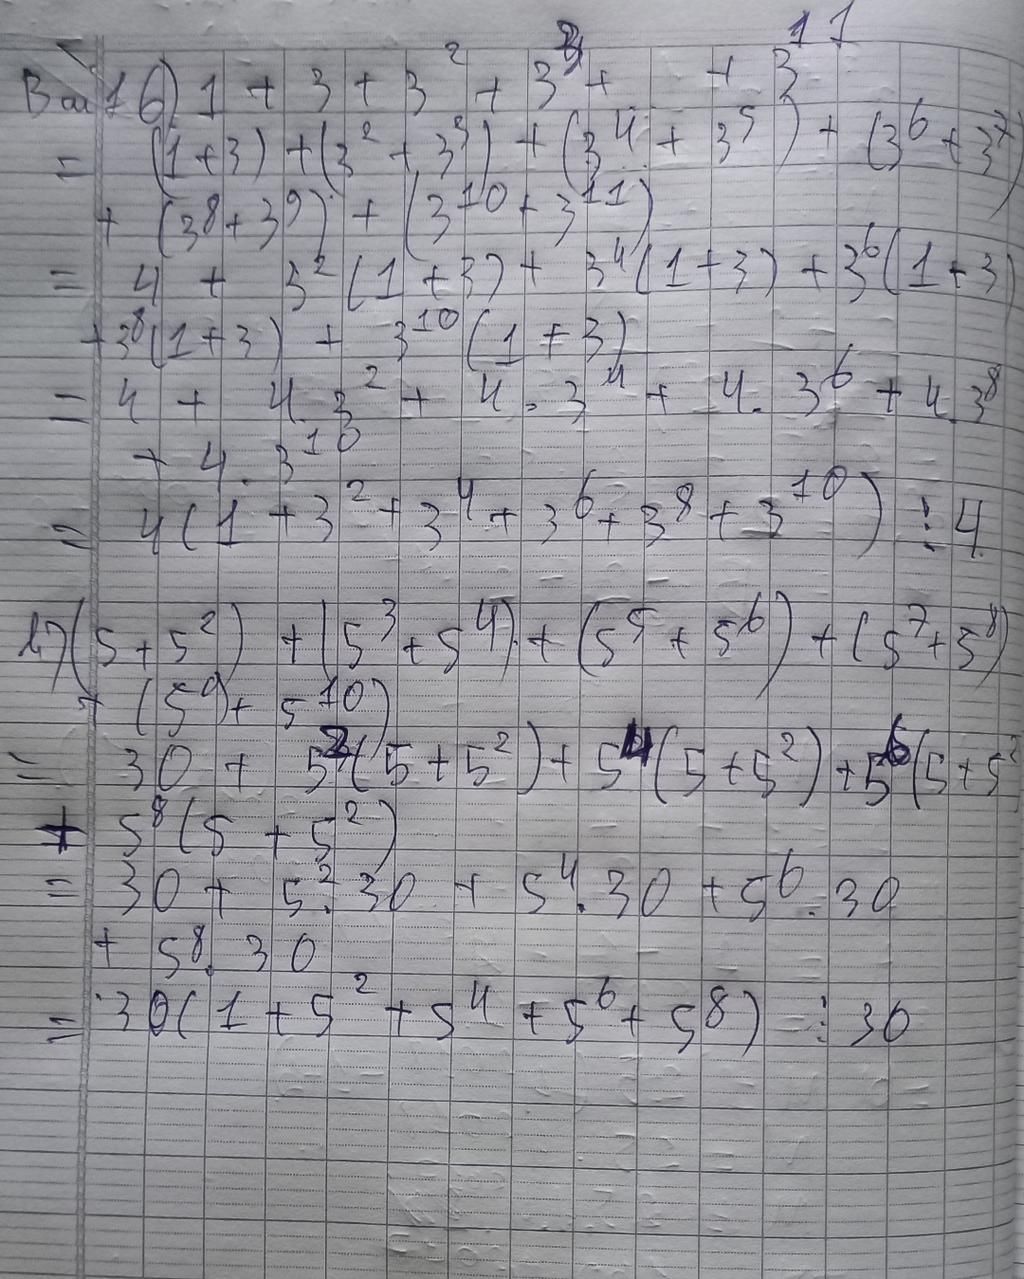 Bài 16) 1 + 3 + 3² + 3³ + + 3¹¹
= (1+3) + (3² + 3³) + (3⁴ + 3⁵) + (3⁶ + 3⁷)
+ (3⁸ + 3⁹) + (3¹⁰ + 3¹¹)
= 4 + 3² (1+3) + 3⁴ (1+3) + 3⁶ (1+3)
+ 3⁸ (1+3) + 3¹⁰ (1+3)
= 4 + 4.3² + 4.3⁴ + 4.3⁶ + 4.3⁸
+ 4.3¹⁰
= 4 (1 + 3² + 3⁴ + 3⁶ + 3⁸ + 3¹⁰) ⋮ 4
17) (5 + 5²) + (5³ + 5⁴) + (5⁵ + 5⁶) + (5⁷ + 5⁸)
+ (5⁹ + 5¹⁰)
= 30 + 5² (5 + 5²) + 5⁴ (5 + 5²) + 5⁶ (5 + 5²
+ 5⁸ (5 + 5²)
= 30 + 5².30 + 5⁴.30 + 5⁶.30
+ 5⁸.30
= 30 (1 + 5² + 5⁴ + 5⁶ + 5⁸) ⋮ 30